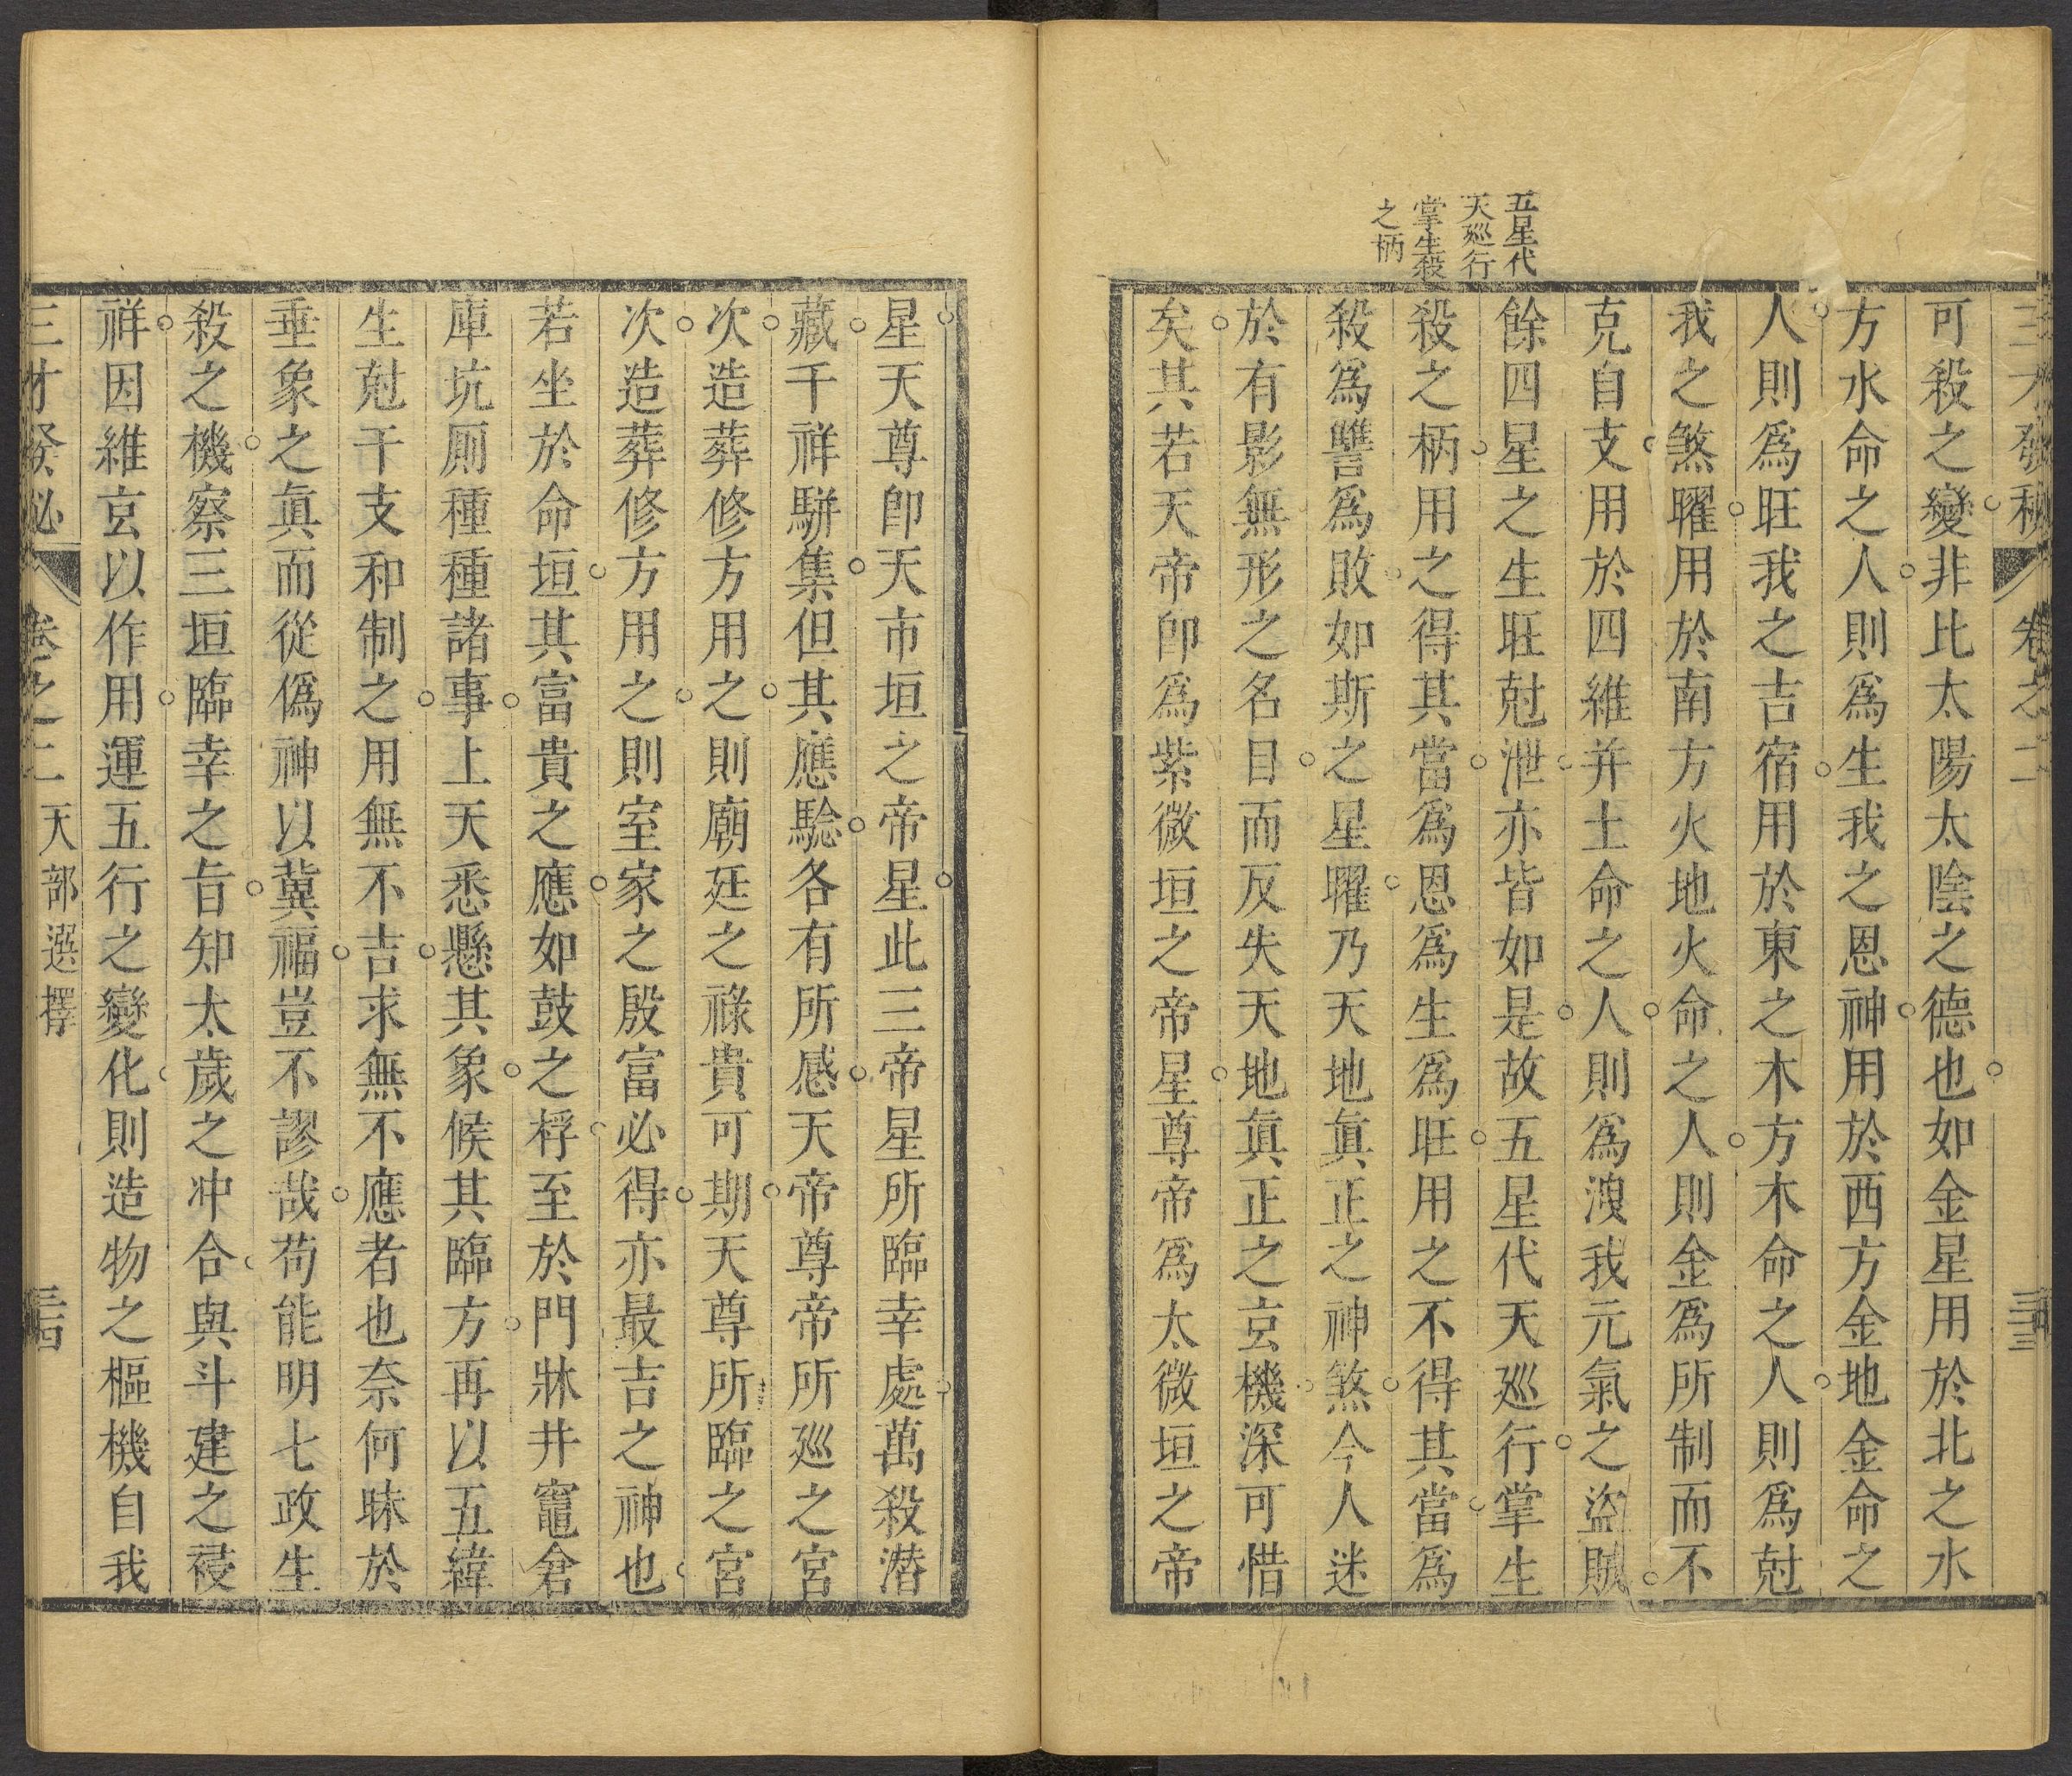 三才發秘 卷之二 三十三
可殺之變非比太陽太陰之德也如金星用於北之水
方水命之人則爲生我之恩神用於西方金地金命之
人則爲旺我之吉宿用於東之木方木命之人則爲尅
我之煞曜用於南方火地火命之人則金爲所制而不
克自支用於四維并土命之人則爲洩我元氣之盜賊
餘四星之生旺尅泄亦皆如是故五星代天廵行掌生
殺之柄用之得其當爲恩爲生爲旺用之不得其當爲
殺爲讐爲敗如斯之星曜乃天地眞正之神煞今人迷
於有影無形之名目而反失天地眞正之玄機深可惜
矣其若天帝卽爲紫微垣之帝星尊帝爲太微垣之帝
五星代
天廵行
掌生殺
之柄
星天尊卽天市垣之帝星此三帝星所臨幸處萬殺潜
藏千祥駢集但其應騐各有所感天帝尊帝所廵之宮
次造葬修方用之則廟廷之祿貴可期天尊所臨之宮
次造葬修方用之則室家之殷富必得亦最吉之神也
若坐於命垣其富貴之應如鼓之桴至於門牀井竈倉
庫坑厠種種諸事上天悉懸其象候其臨方再以五緯
生尅干支和制之用無不吉求無不應者也奈何昧於
垂象之眞而從僞神以冀福豈不謬哉苟能明七政生
殺之機察三垣臨幸之旨知太歲之冲合與斗建之祲
祥因維玄以作用運五行之變化則造物之樞機自我
三才發秘 卷之二 天部選擇 三十四